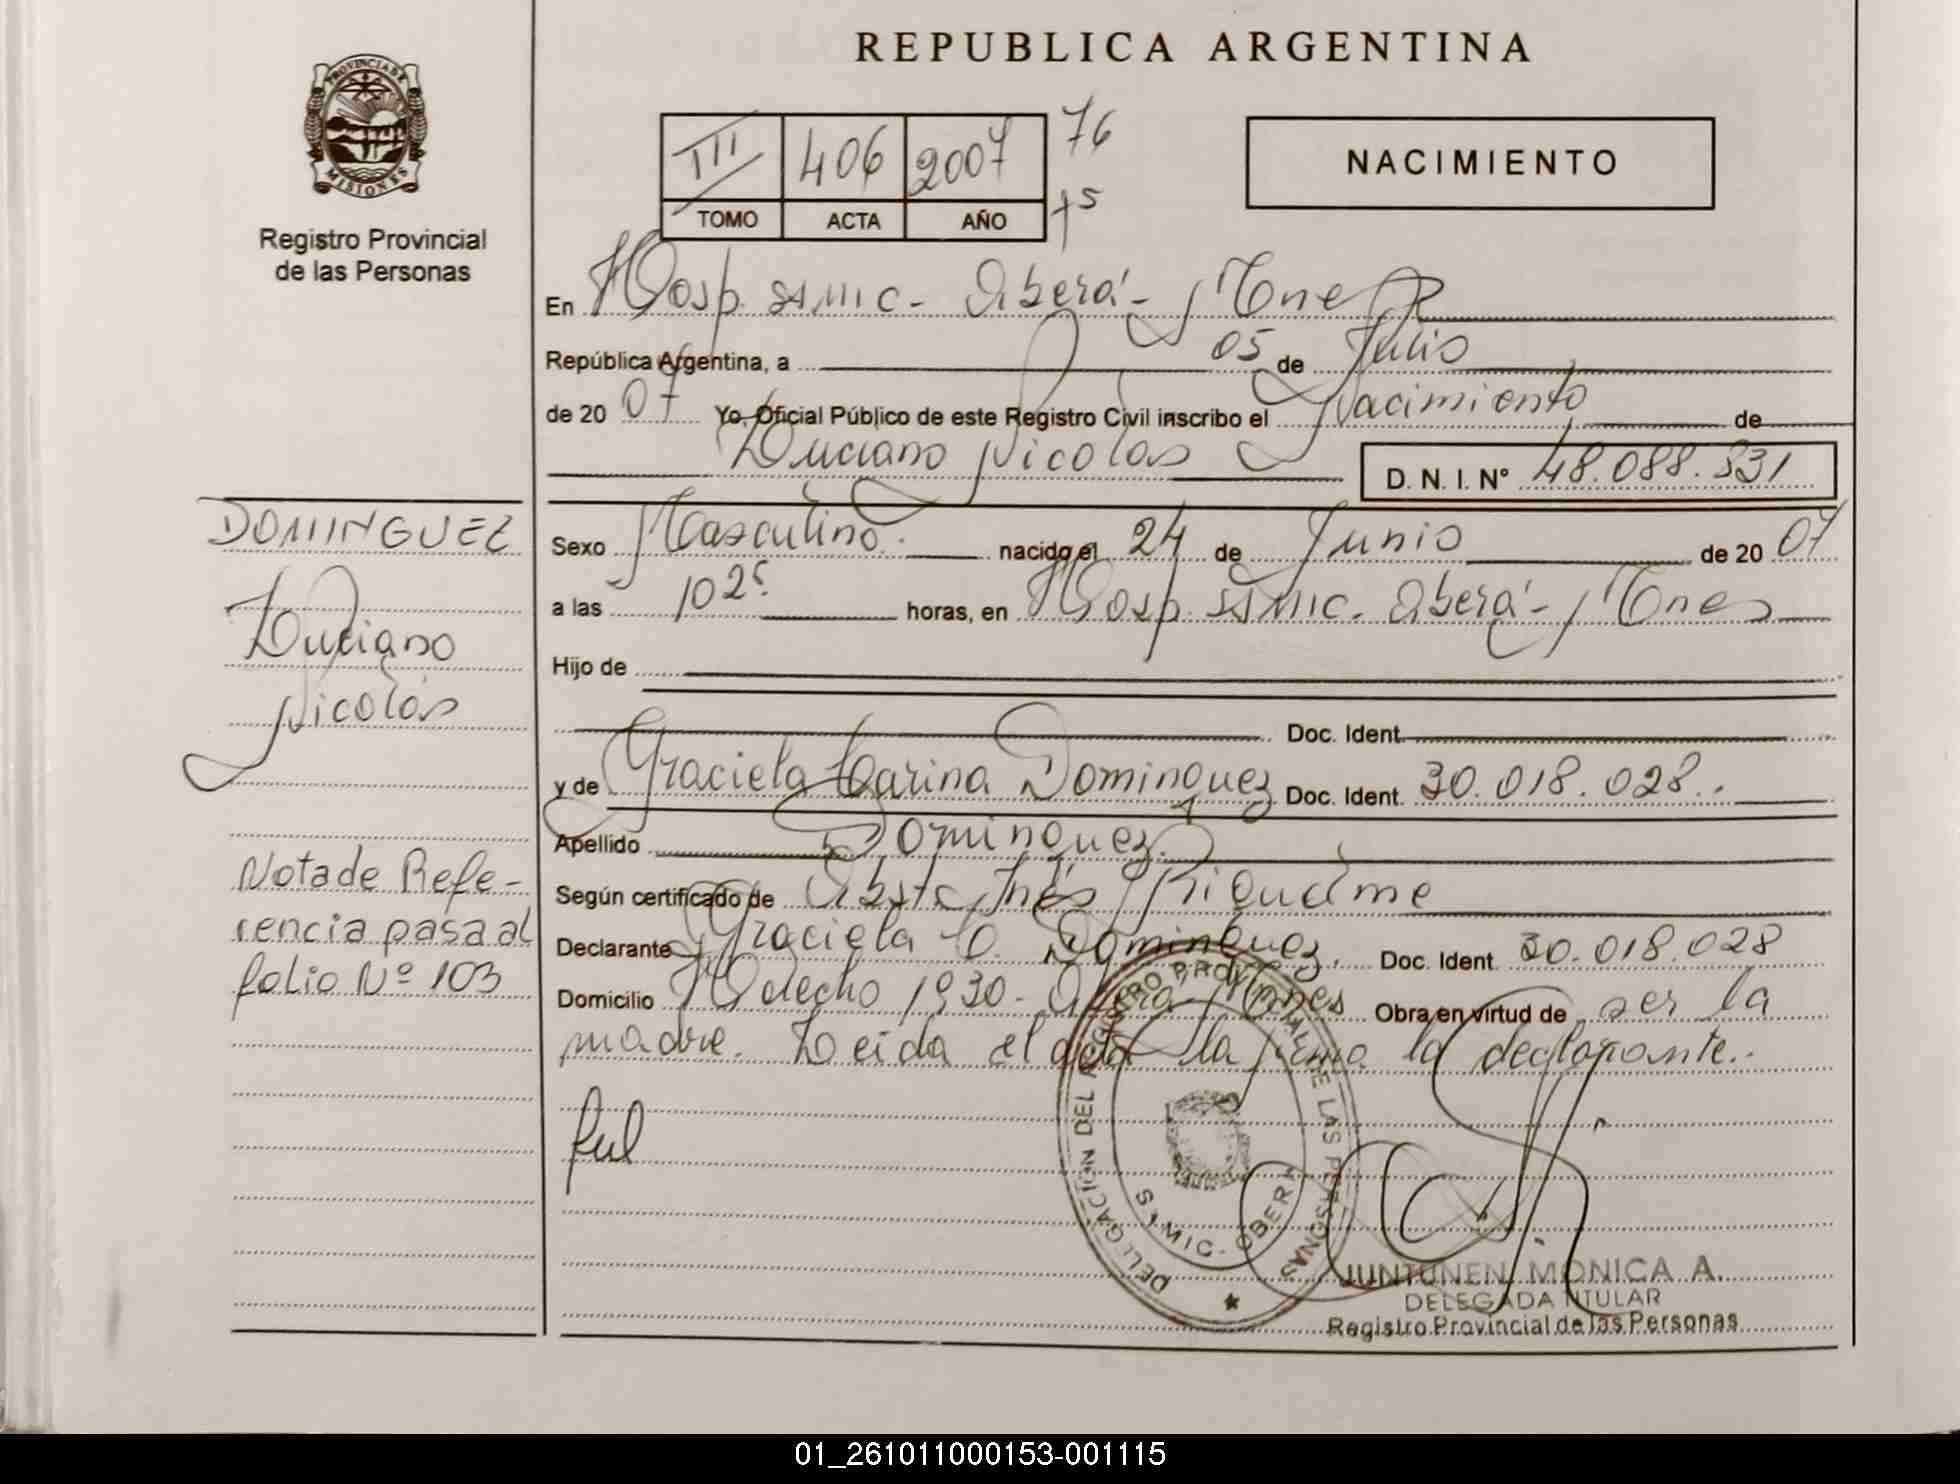 REPUBLICA ARGENTINA
PROVINCIA DE
MISIONES
Registro Provincial
de las Personas
III 406 2007 76
TOMO ACTA AÑO
NACIMIENTO
En Hosp. SAMIC - Oberá - Mnes
República Argentina, a 05 de Julio
de 20 07 Yo, Oficial Público de este Registro Civil inscribo el Nacimiento de
Luciano Nicolás D. N. I. Nº 48.088.831
DOMINGUEZ
Luciano
Nicolás
Nota de Refe-
rencia pasa al
folio Nº 103
Sexo Masculino. nacido el 24 de Junio de 20 07
a las 1025 horas, en Hosp. SAMIC. Oberá - Mnes
Hijo de
Doc. Ident.
y de Graciela Carina Dominguez Doc. Ident. 30.018.028..
Apellido Dominguez.
Según certificado de Obstc Inés
Declarante Graciela C. Dominguez. Doc. Ident. 30.018.028
Domicilio 1930 - Oberá - Mnes Obra en virtud de ser la
madre. Leida el acta la firma la declarante..
DELEGACION DEL REGISTRO PROVINCIAL DE LAS PERSONAS
SAMIC - OBERA
JUNTUNEN, MONICA A.
DELEGADA TITULAR
Registro Provincial de las Personas
01_261011000153-001115